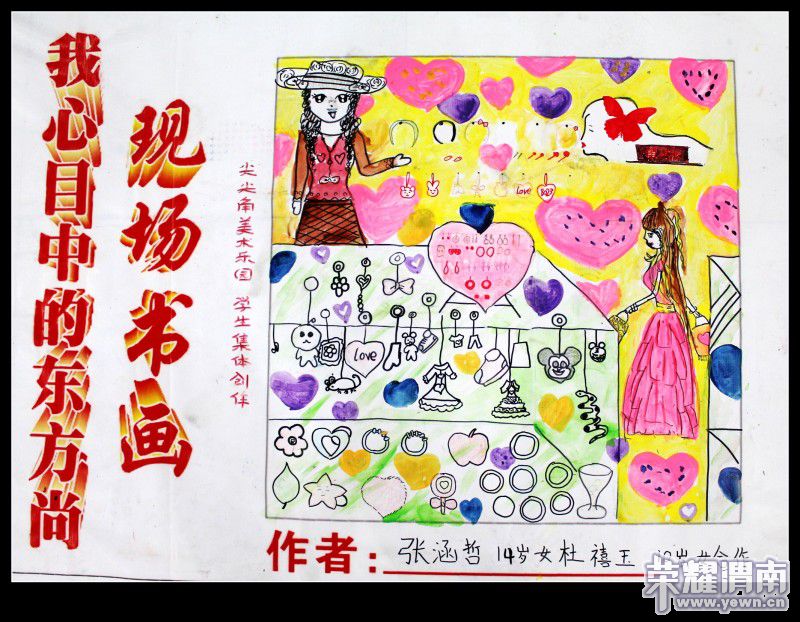 我心目中的东方尚
现场书画
尖尖角美术乐园 学生集体创作
love
Love
作者: 张涵哲 14岁女杜禧玉 12岁女合作
荣耀渭南
www.yewn.cn